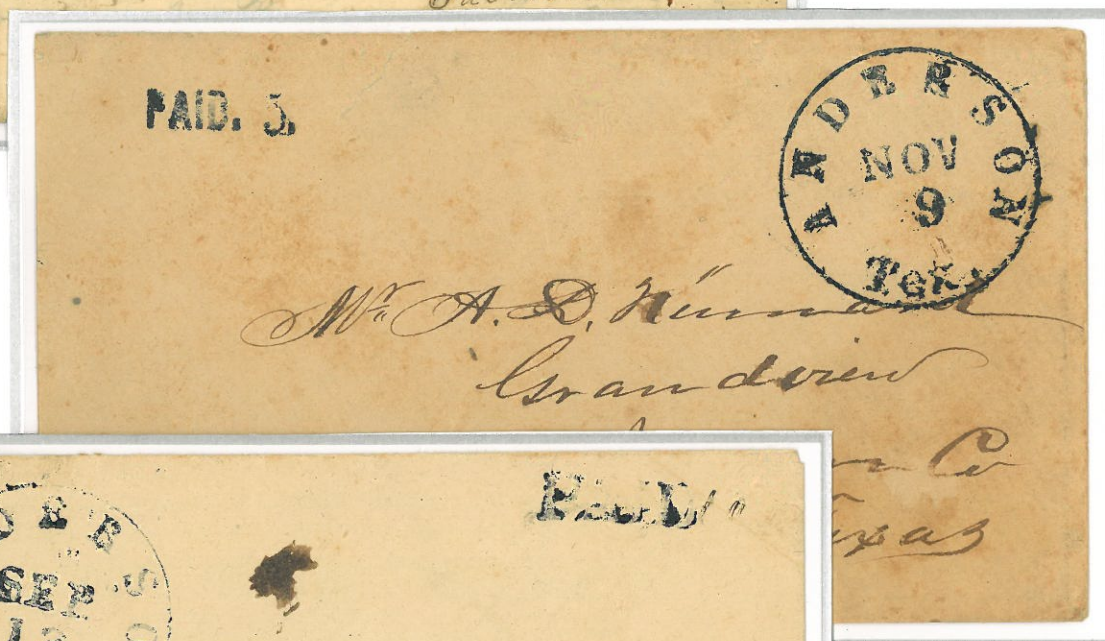 PAID. 5.
ANDERSON
NOV
9
Tex.
Mr. A. D.
Grandview
Co
Texas
PAID
SEP